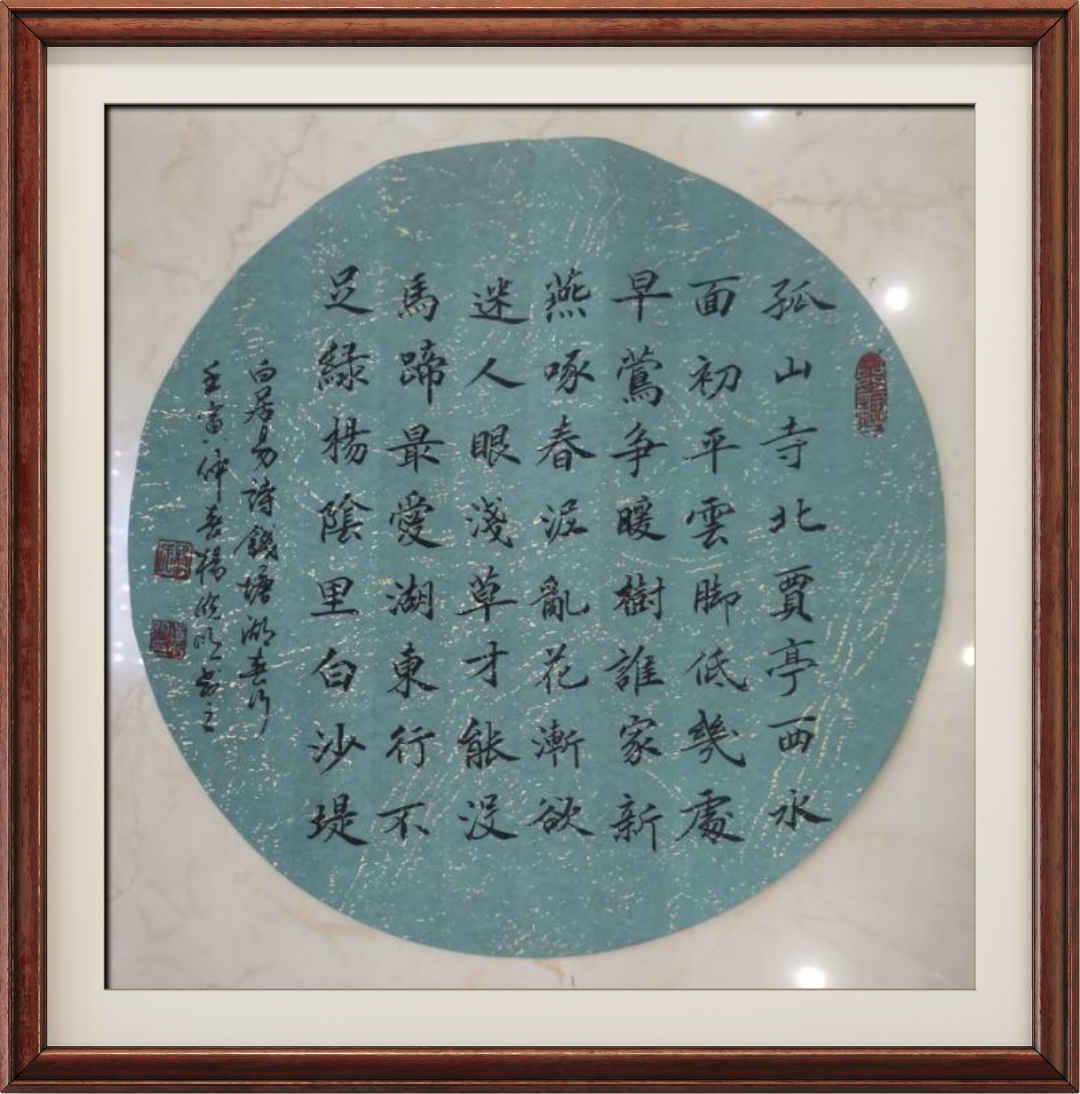 孤山寺北賈亭西水
面初平雲脚低幾處
早鶯争暖樹誰家新
燕啄春泥亂花漸欲
迷人眼淺草才能没
馬蹄最愛湖東行不
足緑楊陰里白沙堤
白居易詩錢塘湖春行
壬寅仲春楊